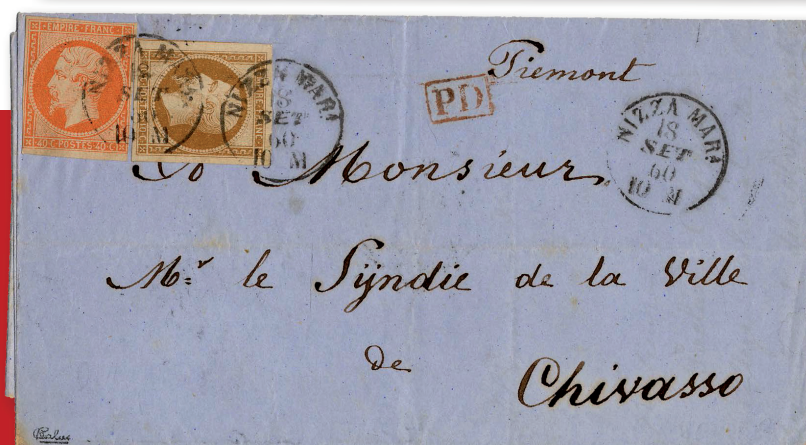 EMPIRE FRANC
40·C·POSTES·40·C
NIZZA MAR
SET
10 M
NIZZA MARA
18
SET
60
10 M
Piemont
PD
NIZZA MARA
18
SET
60
10 M
A Monsieur
Mr le Syndic de la Ville
de
Chivasso